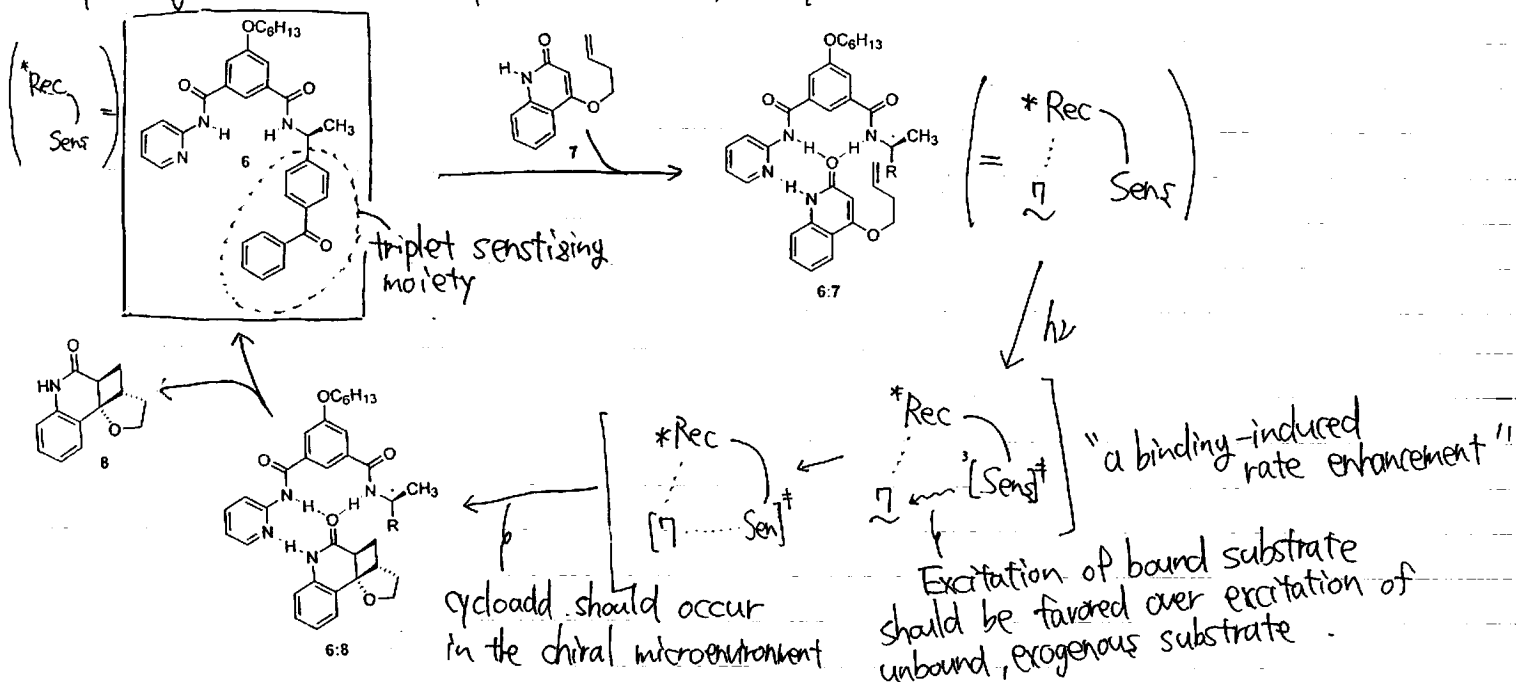 OC6H13
*Rec
Sens
=
O
O
N
H
H
N
CH3
N
6
O
triplet senstizing
moiety
O
H
N
O
7
OC6H13
O
O
N
H
H
N
CH3
R
N
H
O
N
O
6:7
=
*Rec
7
Sens
hν
*Rec
7
3[Sens]‡
"a binding-induced
rate enhancement"
Excitation of bound substrate
should be favored over excitation of
unbound, exogenous substrate.
*Rec
[7 Sen]‡
cycloadd. should occur
in the chiral microenvironment
OC6H13
O
O
N
H
H
N
CH3
R
N
H
O
N
O
6:8
O
HN
O
8